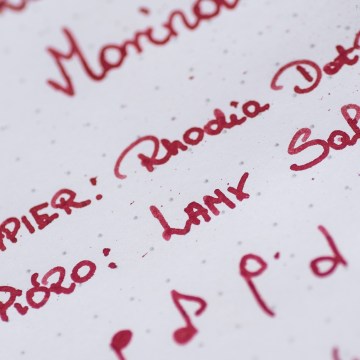 Morina
PAPIER: Rhodia Dot
PIÓRO: LAMY Saf